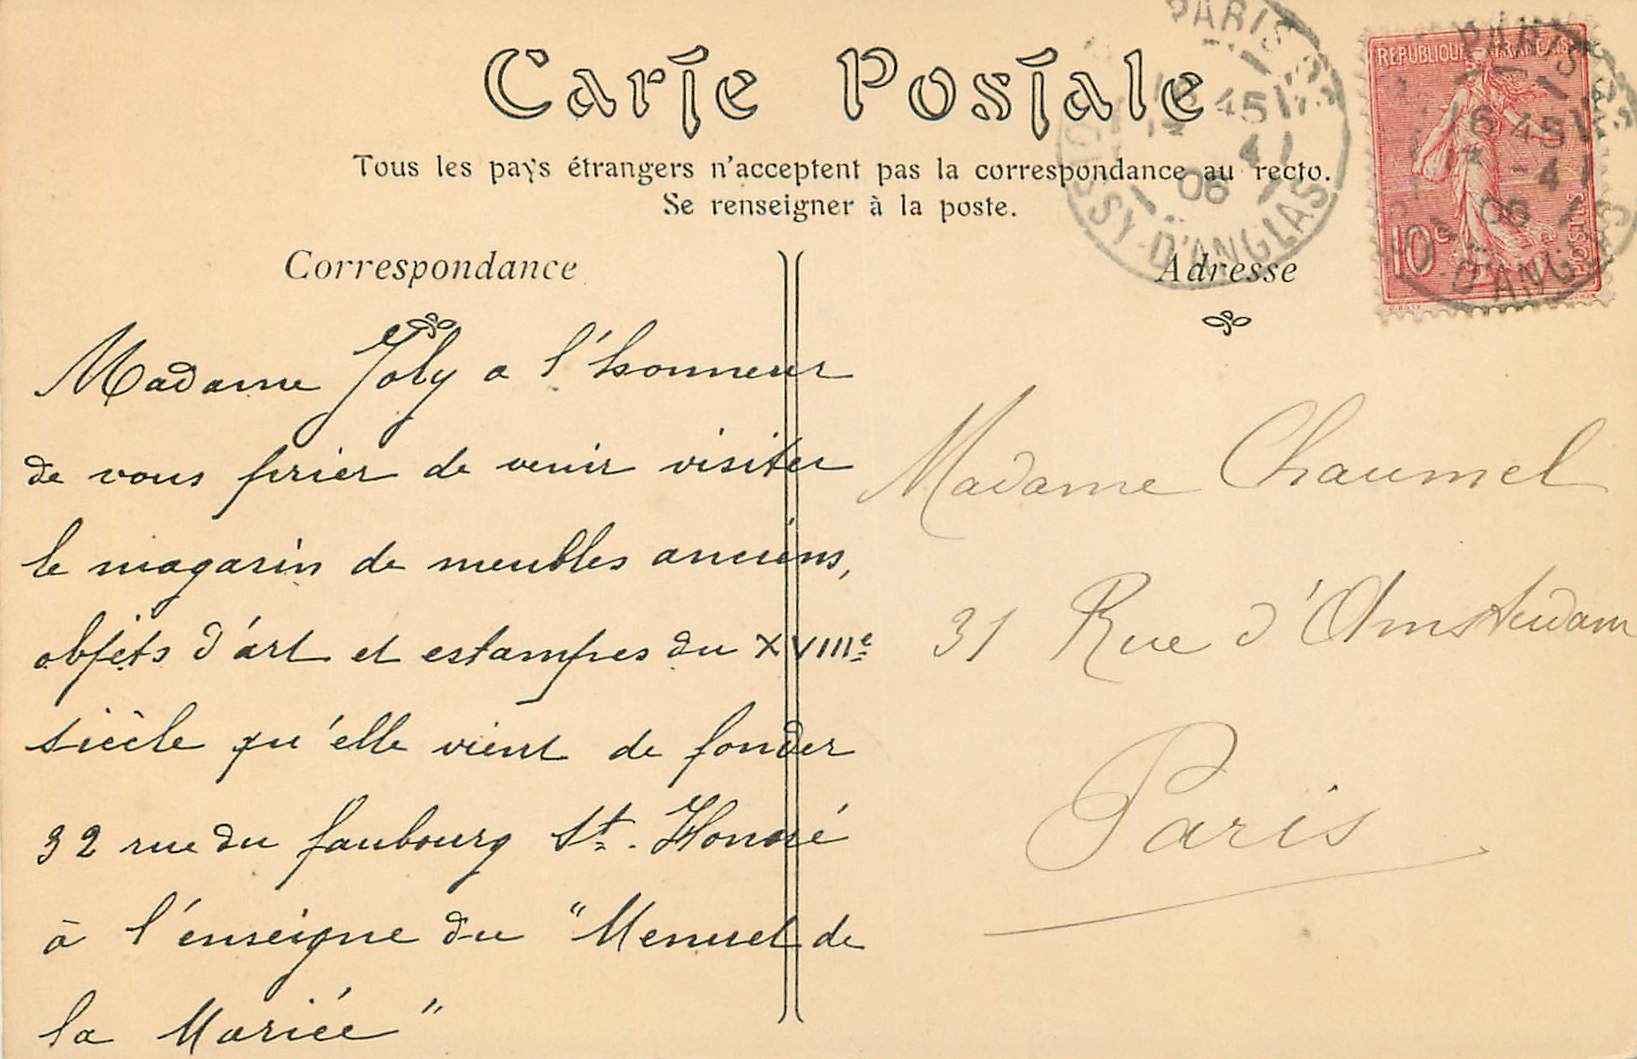 Carte Postale
Tous les pays étrangers n'acceptent pas la correspondance au recto.
Se renseigner à la poste.
Correspondance
Madame Joly a l'honneur
de vous prier de venir visiter
le magasin de meubles anciens,
objets d'art et estampes du XVIIIe
siècle qu'elle vient de fonder
32 rue du faubourg St. Honoré
à l'enseigne du "Menuet de
la Mariée"
Adresse
Madame Chaumel
31 Rue d'Amsterdam
Paris
REPUBLIQUE FRANÇAISE
10c
POSTES
PARIS
45
4
06
D'ANGLAS
PARIS
6 45
4
06
D'ANG